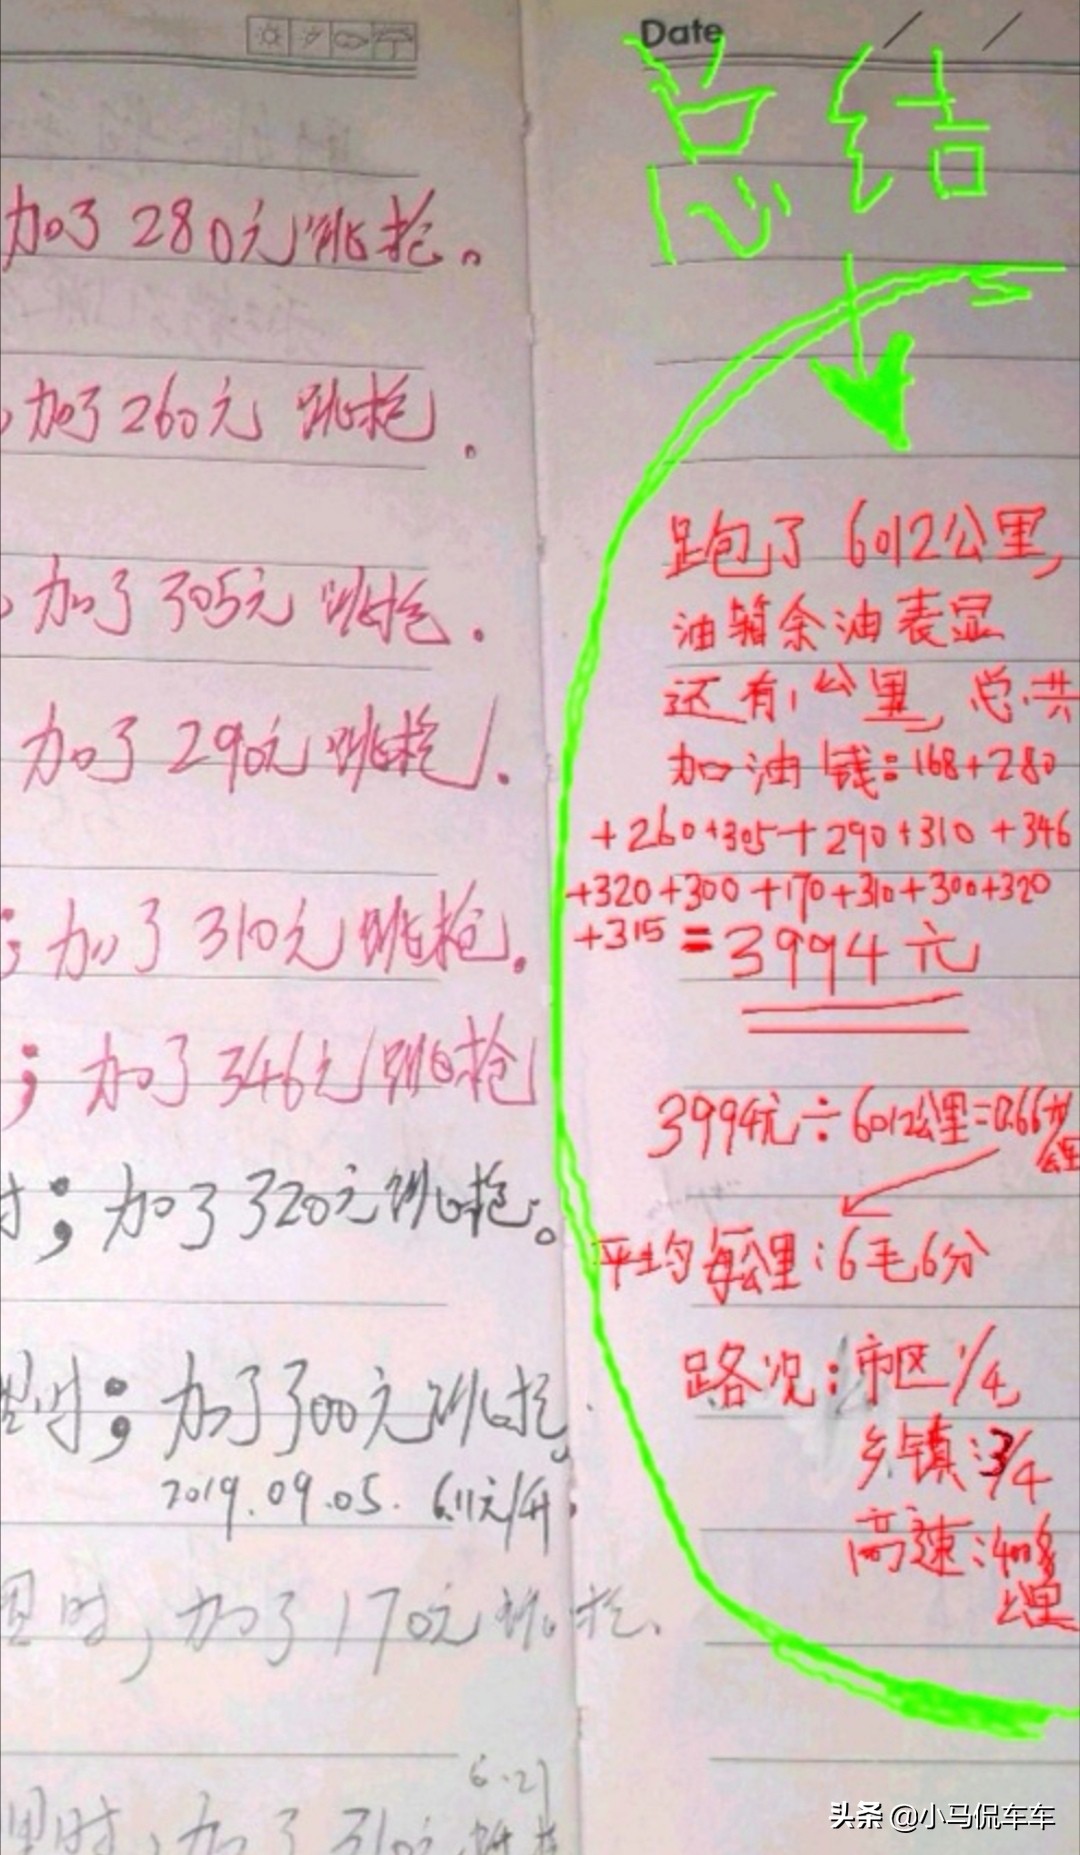 加了280元跳抢。
加了260元 跳抢.
加了305元 跳抢.
加了290元跳抢.
;加了310元跳抢.
;加了346元跳抢
;加了320元跳抢。
时;加了300元跳抢.
2019.09.05. 6.11元/升.
里时,加了170元跳抢.
6.21
里时,加了310元跳抢
Date / /
总结
跑了6012公里,
油箱余油表显
还有1公里,总共
加油钱:168+280
+260+305+290+310+346
+320+300+170+310+300+320
+315=3994元
3994元÷6012公里=0.66元/
公里
平均每公里:6毛6分
路况:市区1/4,
乡镇:3/4
高速:400多
公里
头条 @小马侃车车